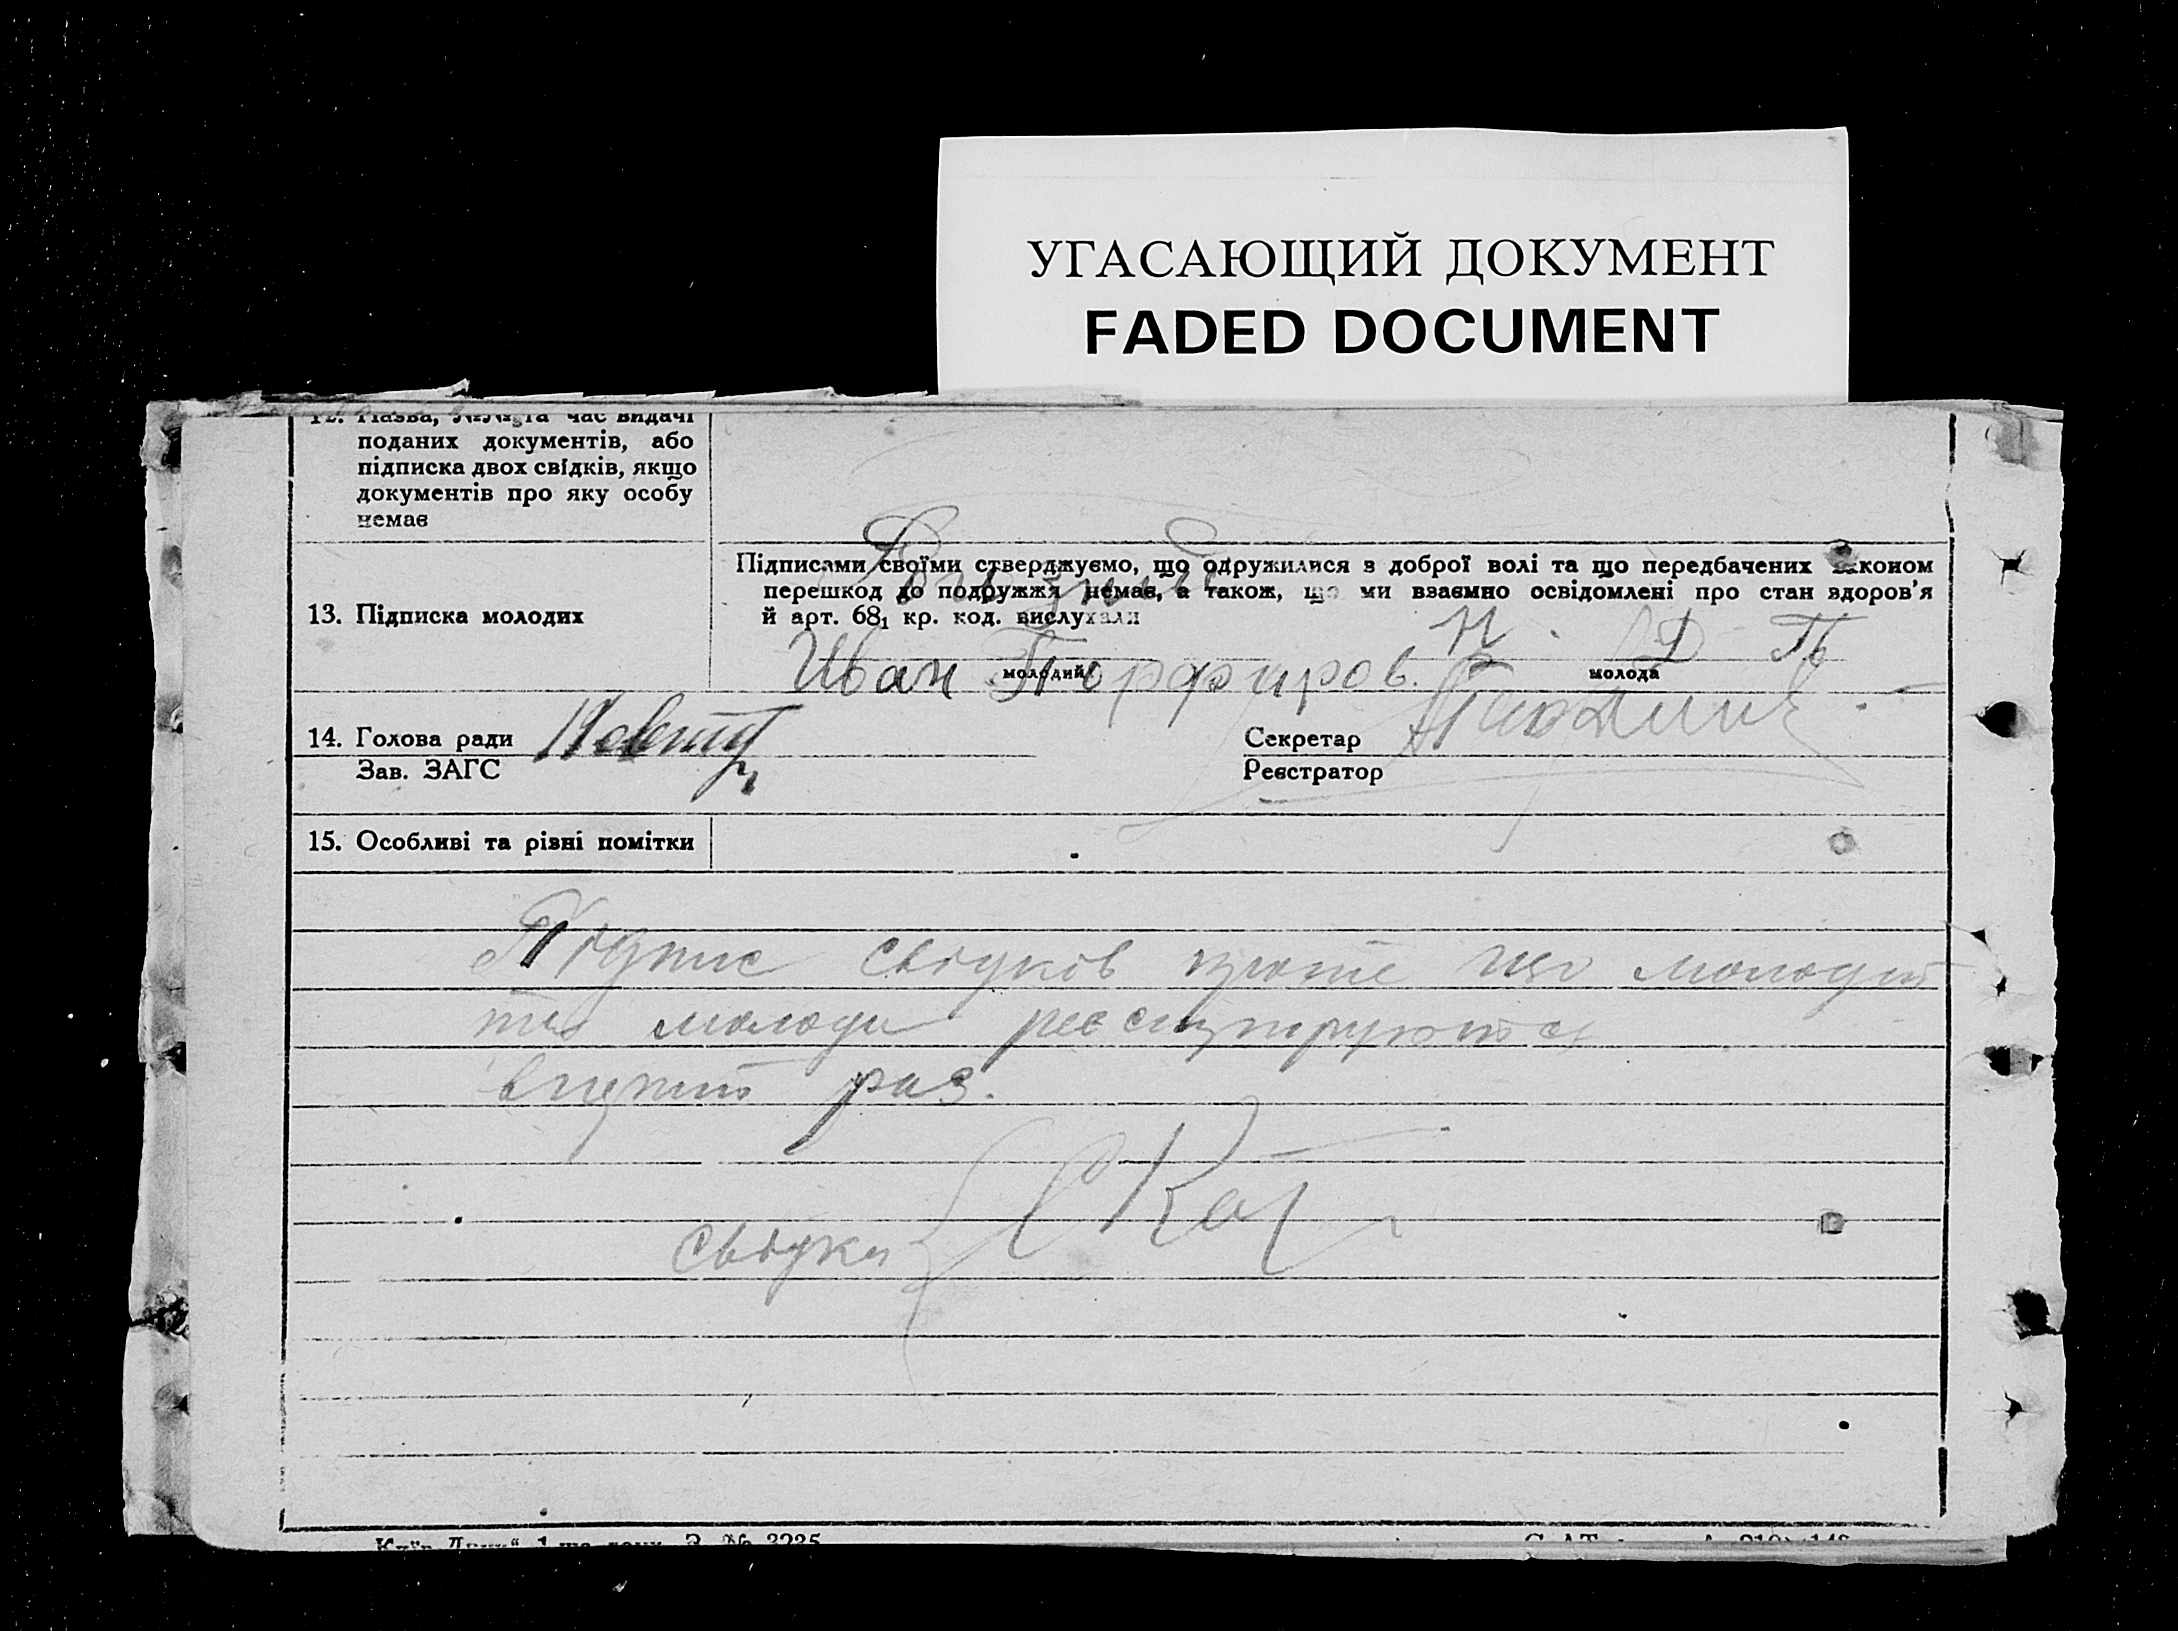 УГАСАЮЩИЙ ДОКУМЕНТ
FADED DOCUMENT
12. Назва, №№ та час видачі
поданих документів, або
підписка двох свідків, якщо
документів про яку особу
немає
13. Підписка молодих
Підписами своїми стверджуємо, що одружилися з доброї волі та що передбачених законом
перешкод до подружжя немає, а також, що ми взаємно освідомлені про стан здоров'я
й арт. 68₁ кр. код. вислухали
Иван Порфиров.
молодий
молода
14. Голова ради
Зав. ЗАГС
Секретар
Реєстратор
15. Особливі та різні помітки
Підпис свідків про те що молодий
та молода реєструються
раз.
свідки
№ 3235